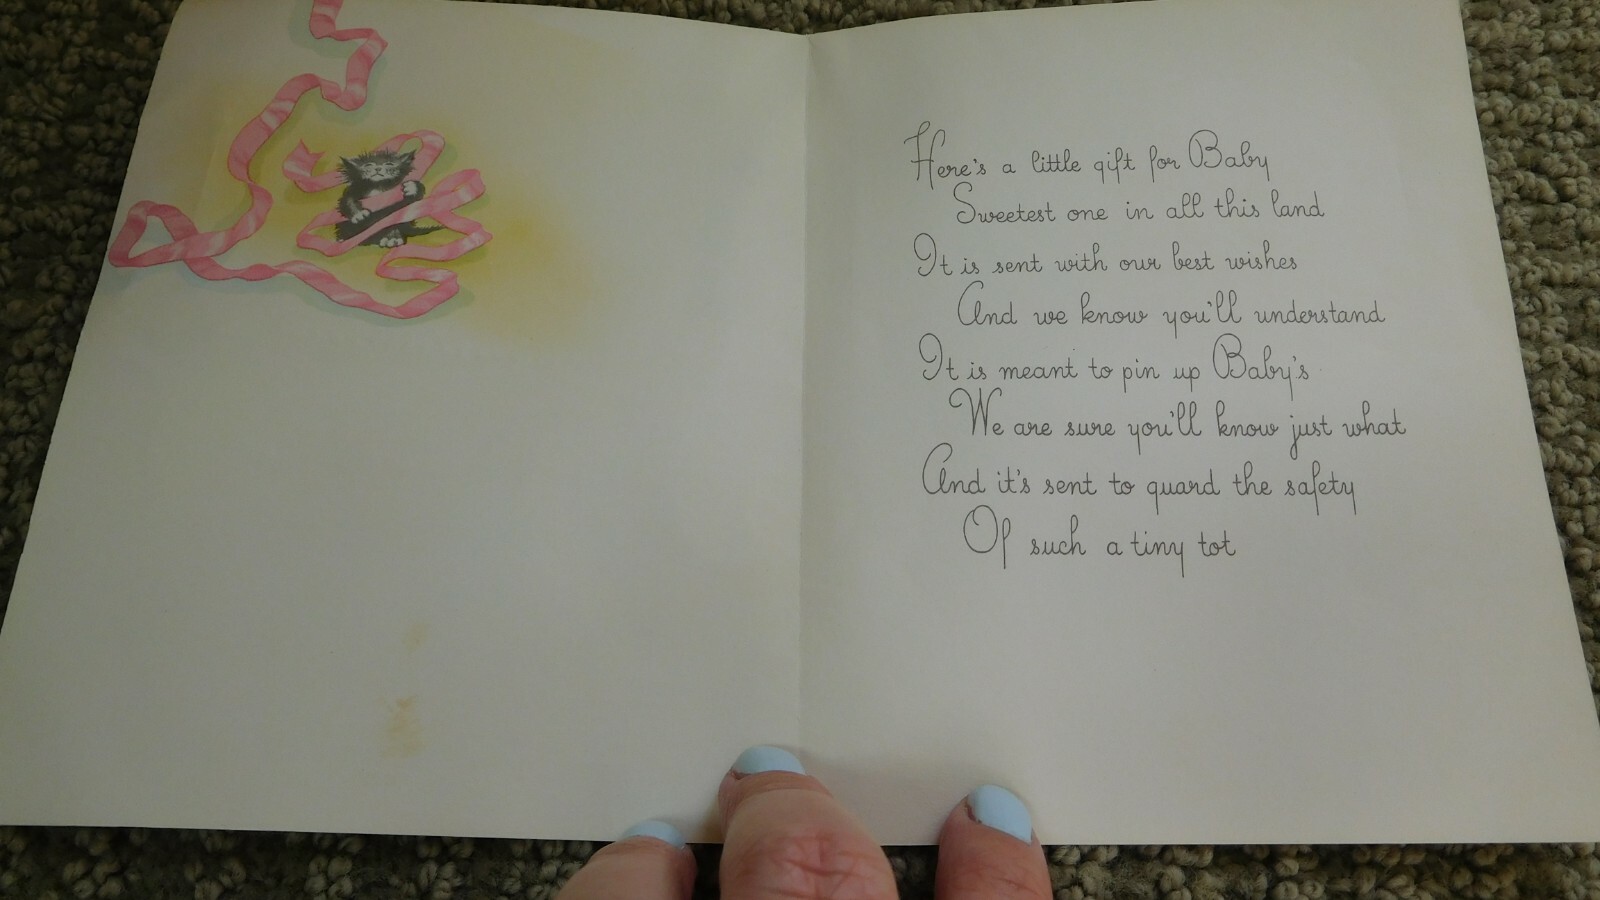 Here's a little gift for Baby
Sweetest one in all this land
It is sent with our best wishes
And we know you'll understand
It is meant to pin up Baby's
We are sure you'll know just what
And it's sent to guard the safety
Of such a tiny tot